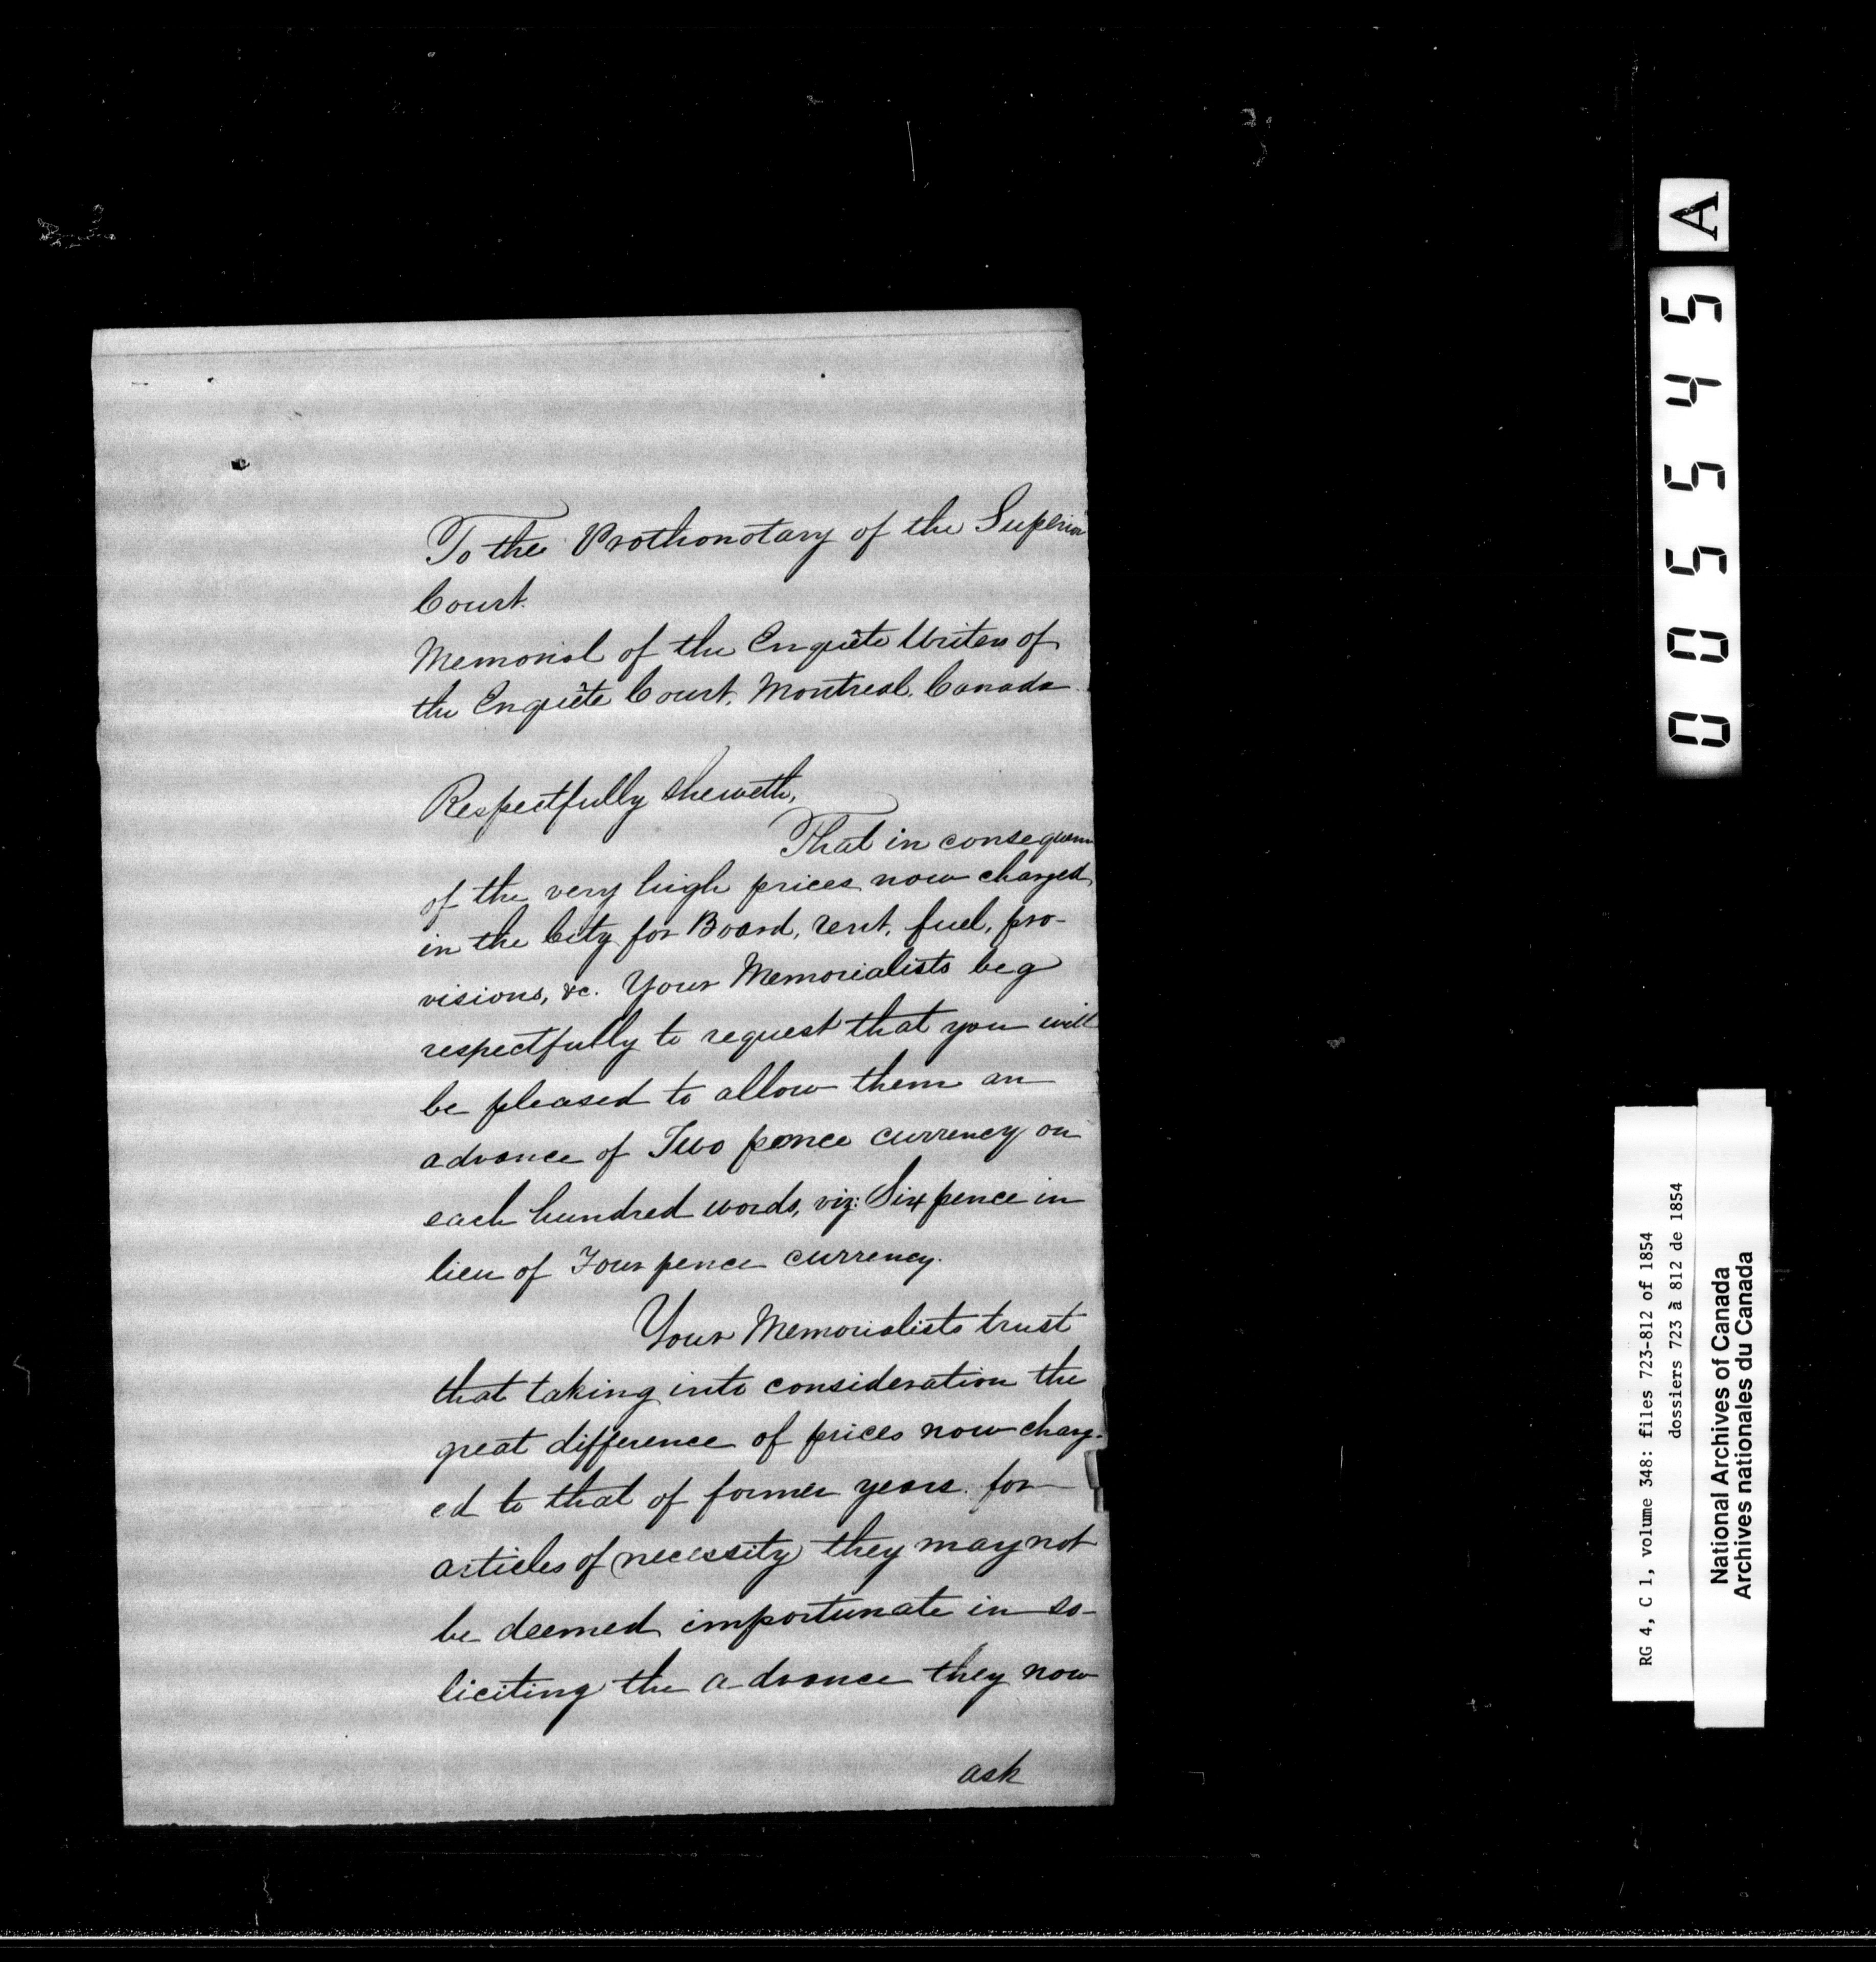 To the Prothonotary of the Superior
Court.
Memorial of the Enquête Writers of
the Enquête Court, Montreal, Canada.
Respectfully sheweth,
That in consequence
of the very high prices now charged
in the City for Board, rent, fuel, pro-
visions, &c. Your Memorialists beg
respectfully to request that you will
be pleased to allow them an
advance of Two pence currency on
each hundred words, viz: Six pence in
lieu of Four pence currency.
Your Memorialists trust
that taking into consideration the
great difference of prices now charg-
ed to that of former years for
articles of necessity they may not
be deemed importunate in so-
liciting the advance they now
ask
A
005545
RG 4, C 1, volume 348: files 723-812 of 1854
dossiers 723 à 812 de 1854
National Archives of Canada
Archives nationales du Canada